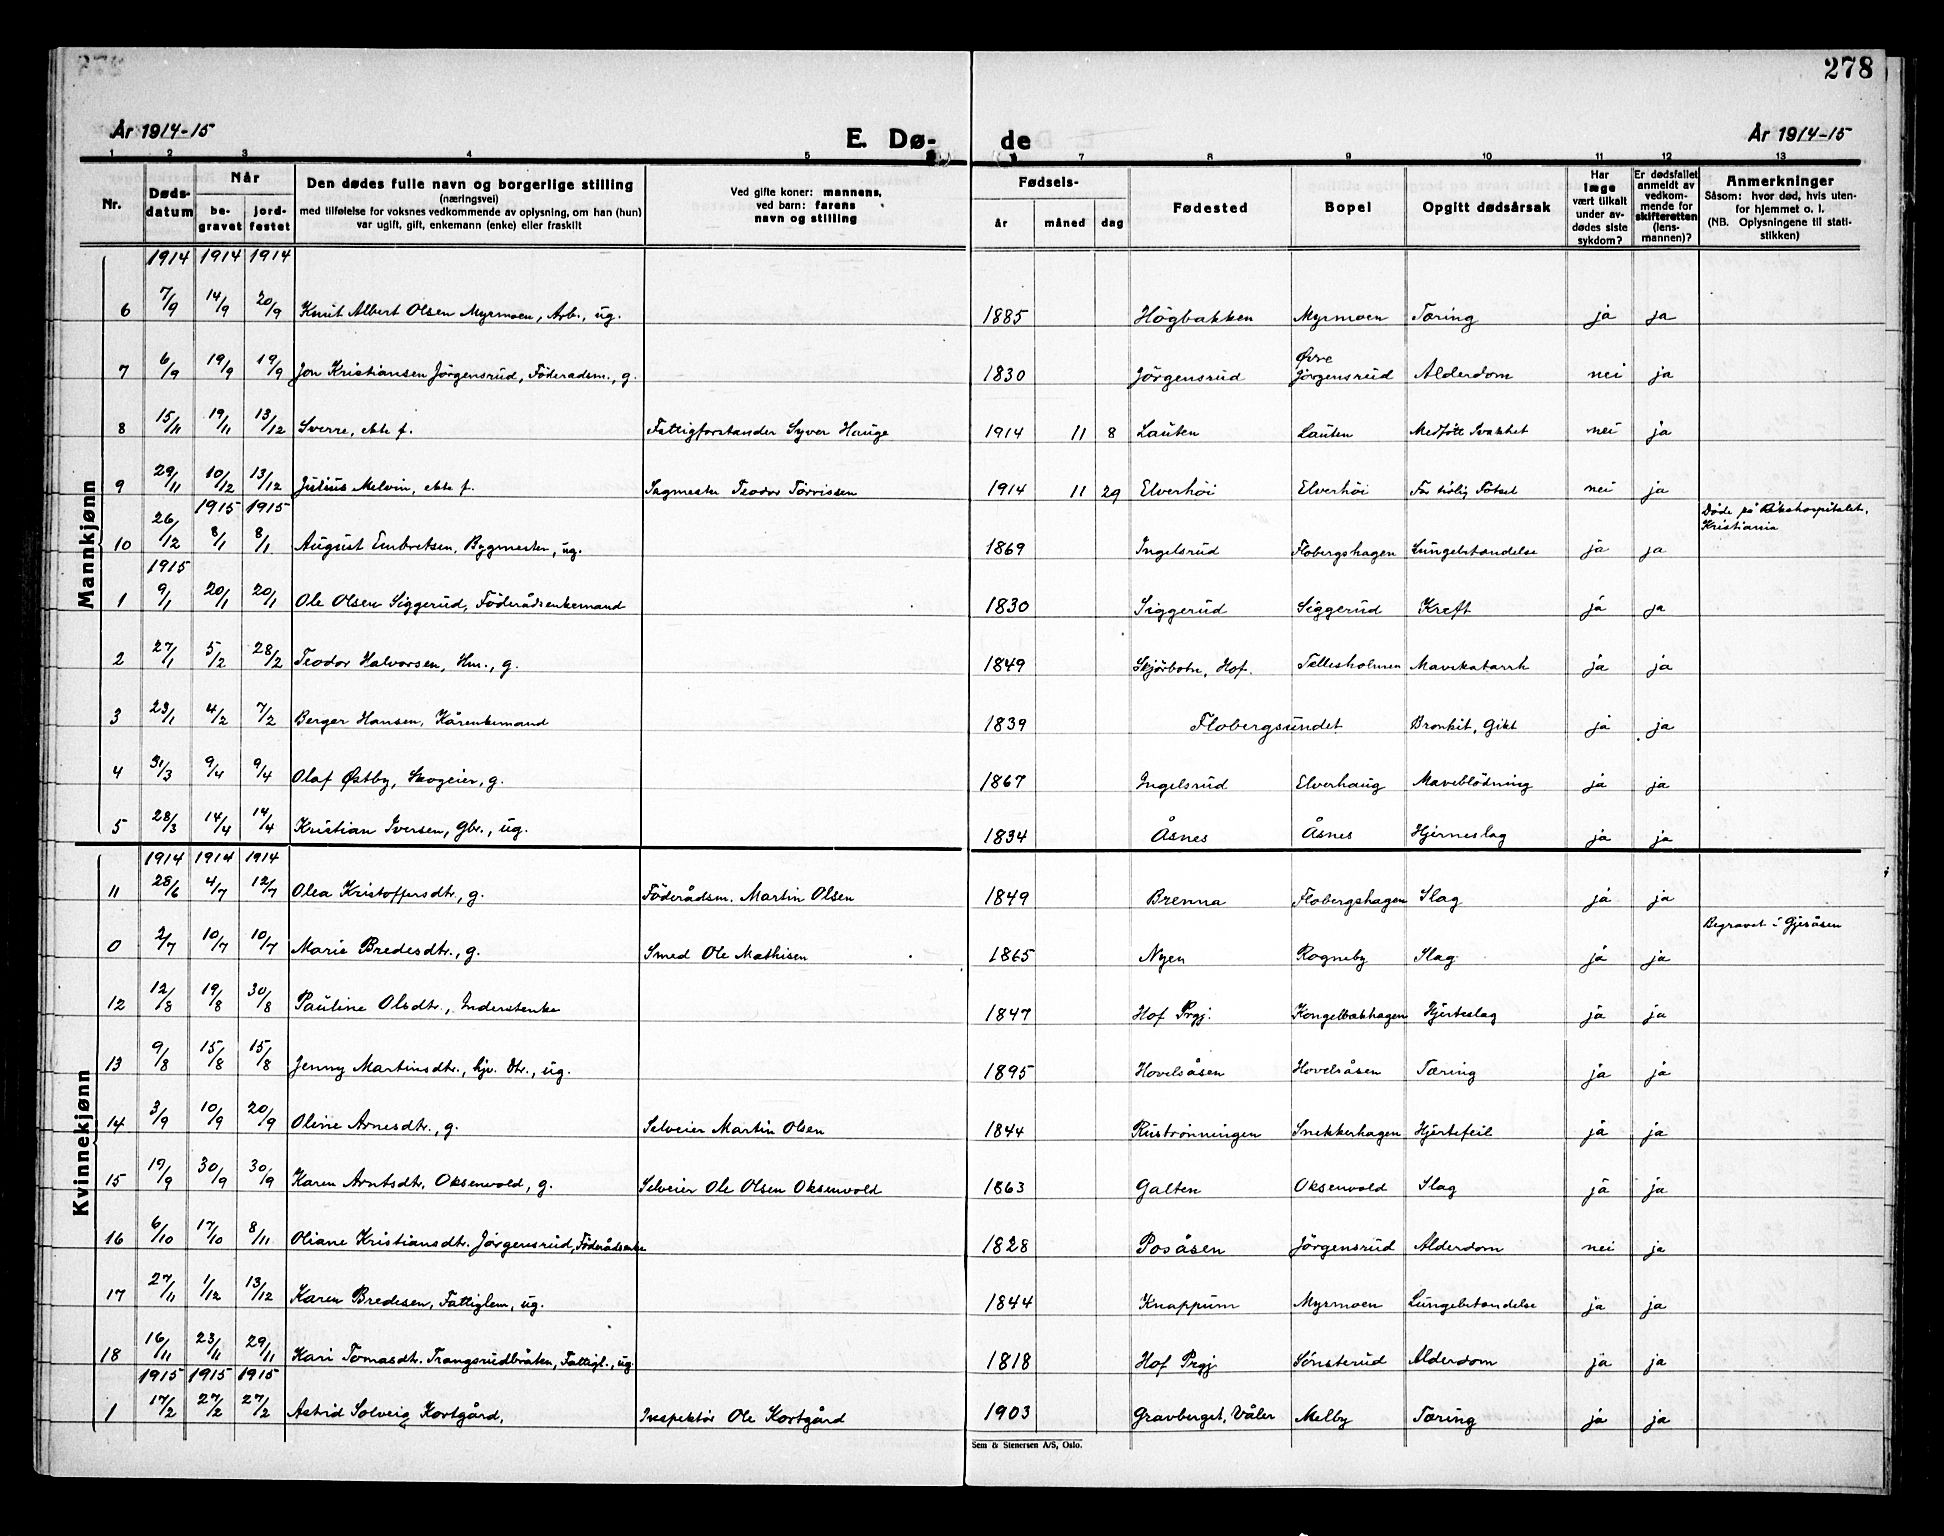 278
År 1914-15
E. Dø- de
År 1914-15
1 2 3 4 5 7 8 9 10 11 12 13
Nr. Døds-datum Når be-gravet jord-festet Den dødes fulle navn og borgerlige stilling (næringsvei) med tilføielse for voksnes vedkommende av oplysning, om han (hun) var ugift, gift, enkemann (enke) eller fraskilt Ved gifte koner: mannens, ved barn: farens navn og stilling Fødsels- år måned dag Fødested Bopel Opgitt dødsårsak Har læge vært tilkalt under av-dødes siste sykdom? Er dødsfallet anmeldt av vedkom-mende for skifteretten (lens-mannen)? Anmerkninger Såsom: hvor død, hvis uten-for hjemmet o. l. (NB. Oplysningene til stati-stikken)
Mannkjønn
1914 1914 1914
6 7/9 14/9 20/9 Knut Albert Olsen Myrmoen, Arb., ug. 1885 Högbakken Myrmoen Tæring ja ja
7 6/9 19/9 19/9 Jon Kristiansen Jörgensrud, Föderadsm., g. 1830 Jörgensrud Øvre Jörgensrud Alderdom nei ja
8 15/11 19/11 13/12 Sverre, ekte f. Fattigforstander Syver Hauge 1914 11 8 Lauten Lauten Medfött Svakhet nei ja
9 29/11 10/12 13/12 Julius Melvin, ekte f. Sagmester Teodor Torvissen 1914 11 29 Elverhöi Elverhöi For tidlig Fötsel nei ja
1915 1915
10 26/12 8/1 8/1 August Embretsen, Bygmester, ug. 1869 Ingelsrud Flobergshagen Lungebetændelse ja ja Döde på Rikshospitalet, Kristiania
1915
1 9/1 20/1 20/1 Ole Olsen Siggerud, Föderådsenkemand 1830 Siggerud Siggerud Kreft ja ja
2 27/1 5/2 28/2 Teodor Halvorsen, Hm., g. 1849 Skjörbotn, Hof. Tellesholmen Mavekatarrh ja ja
3 23/1 4/2 7/2 Berger Hansen, Kårenkemand 1839 Flobergsundet Bronkit, Gikt ja ja
4 31/3 9/4 9/4 Olaf Østby, Skogeier, g. 1867 Ingelsrud Elverhaug Maveblödning ja ja
5 28/3 14/4 14/4 Kristian Iversen, Gbr., ug. 1834 Åsnes Åsnes Hjerneslag ja ja
Kvinnekjønn
1914 1914 1914
11 28/6 4/7 12/7 Olea Kristoffersdtr., g. Föderådsm. Martin Olsen 1849 Brenna Flobergshagen Slag ja ja
0 2/7 10/7 10/7 Marie Bredesdtr., g. Smed Ole Mathisen 1865 Nyen Rogneby Slag ja ja Begravet i Gjesåsen
12 12/8 19/8 30/8 Pauline Olsdtr., Inderstenke 1847 Hof Prgj. Kongelbakhagen Hjerteslag ja ja
13 9/8 15/8 15/8 Jenny Martinsdtr., hjv. Dtr., ug. 1895 Hovelsåsen Hovelsåsen Tæring ja ja
14 3/9 10/9 20/9 Oline Arnesdtr., g. Selveier Martin Olsen 1844 Ruströnningen Snekkerhagen Hjertefeil ja ja
15 19/9 30/9 30/9 Karen Arntsdtr. Oksenvold, g. Selveier Ole Olsen Oksenvold 1863 Galten Oksenvold Slag ja ja
16 6/10 17/10 8/11 Oliane Kristiansdtr. Jörgensrud, Föderådsenke 1828 Posåsen Jörgensrud Alderdom nei ja
17 27/11 1/12 13/12 Karen Bredesen, Fattiglem, ug. 1844 Knappum Myrmoen Lungebetændelse ja ja
18 16/11 23/11 29/11 Kari Tomasdtr. Trangsrudbråten, Fattigl., ug. 1818 Hof Prgj. Sönsterud Alderdom ja ja
1915 1915 1915
1 17/2 27/2 27/2 Astrid Solveig Kortgård, Inspektör Ole Kortgård 1903 Gravberget, Våler Melby Tæring ja ja
Sem & Stenersen A/S, Oslo.